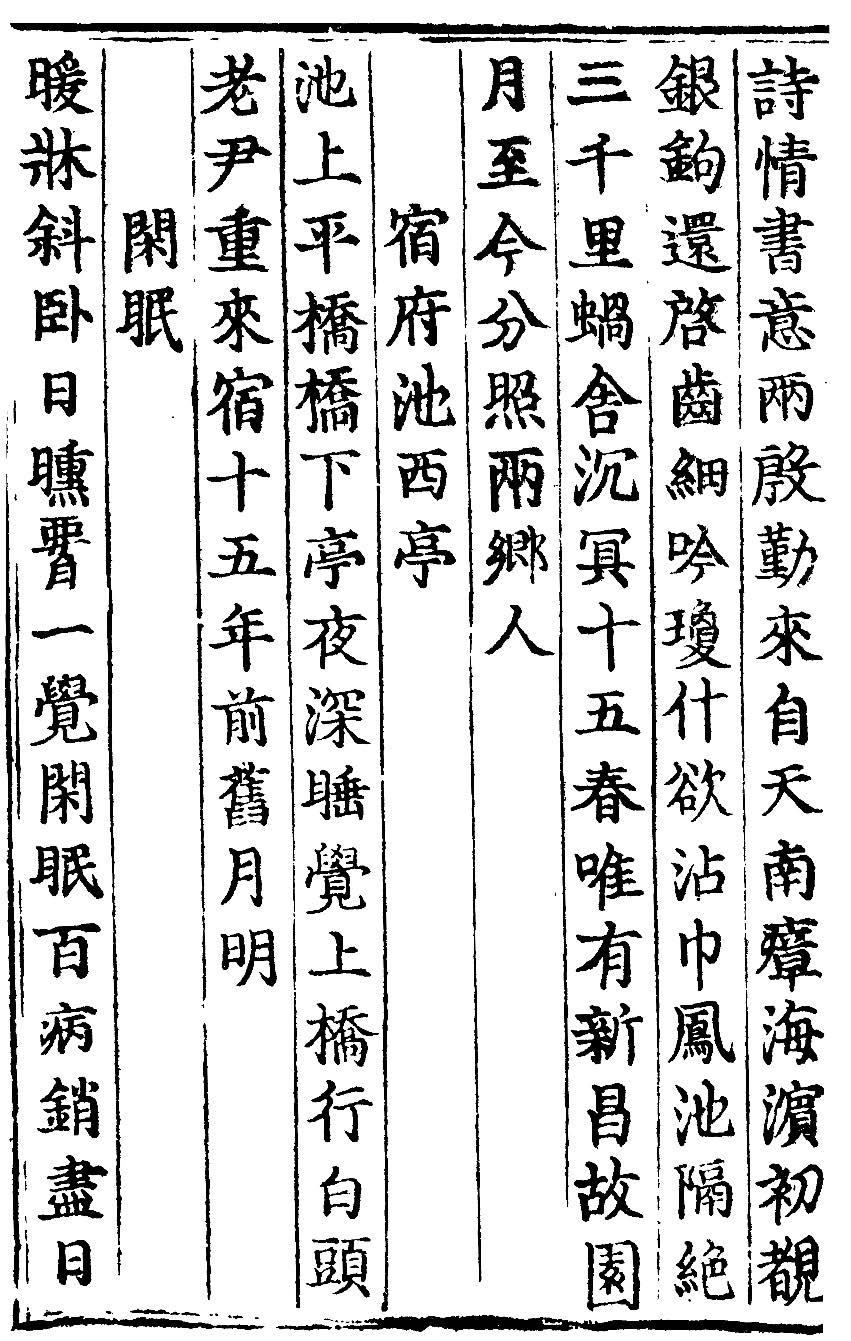 詩情書意兩殷勤來自天南瘴海濵初覩
銀鉤還啓齒細吟瓊什欲沾巾鳳池隔絶
三千里蝸舍沉冥十五春唯有新昌故園
月至今分照兩鄉人
宿府池西亭
池上平橋橋下亭夜深睡覺上橋行白頭
老尹重來宿十五年前舊月明
閑眠
暖牀斜卧日曛䙅一覺閑眠百病銷盡日